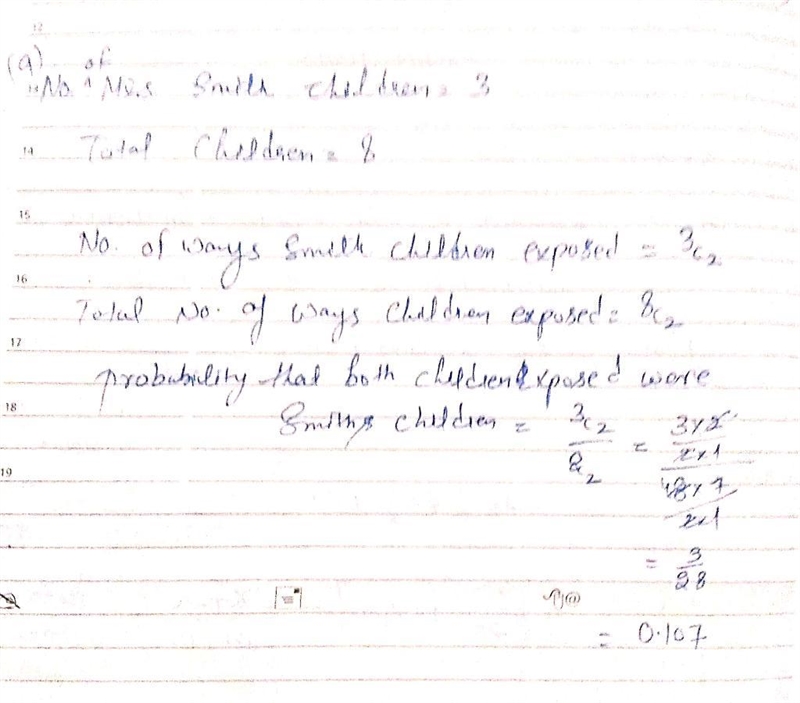 12
(a) of
No. ^ Mrs Smith children = 3
14 Total Children = 8
15
No. of ways Smith children exposed = 3c2
16
Total No. of ways children exposed = 8c2
17
probability that both children exposed were
18 Smith's children = 3c2 / 82 = 3×2 / 2×1 / 48×7 / 2×1
19
= 3/28
= 0.107